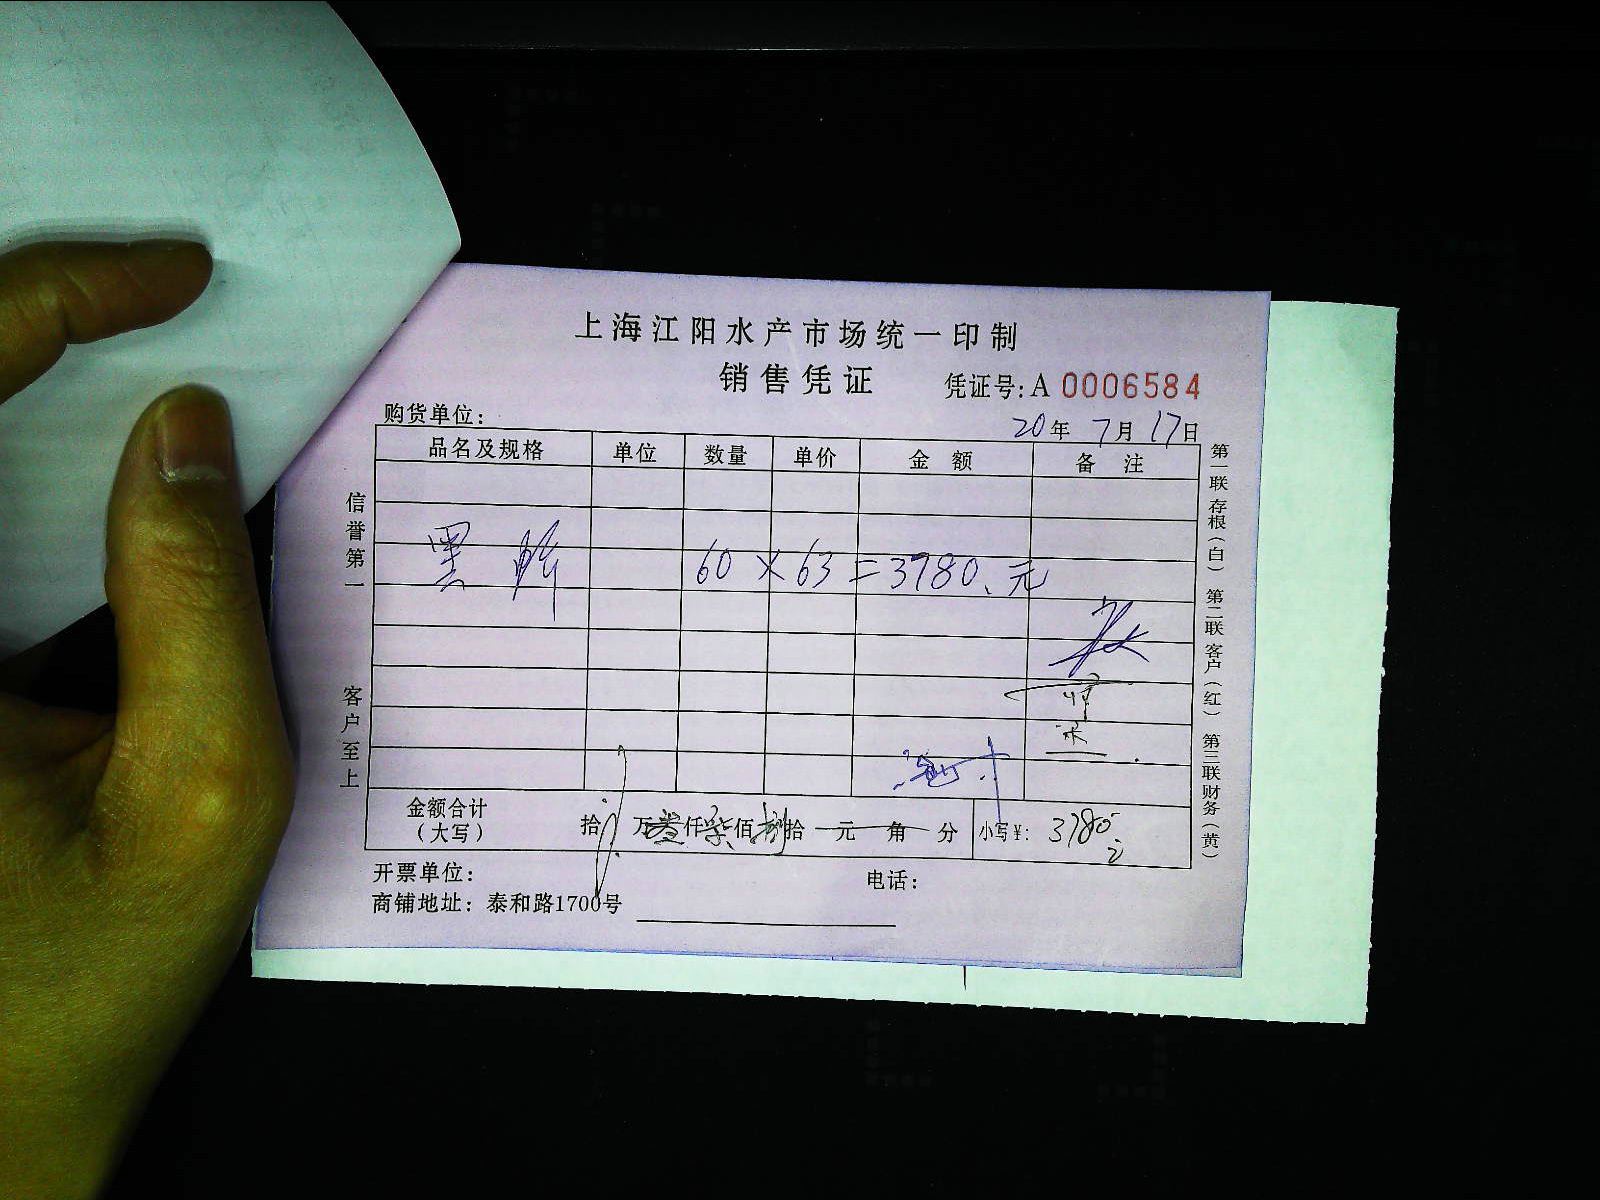 上海江阳水产市场统一印制
销售凭证
凭证号:A 0006584
购货单位:
20年 7月 17日
品名及规格 单位 数量 单价 金额 备注
黑 60 × 63 = 3780.元
金额合计
(大写)
拾 万 叁仟 柒佰 捌拾 元 角 分 小写¥: 3780
开票单位: 电话:
商铺地址: 泰和路1700号
信誉第一
客户至上
第一联 存根(白) 第二联 客户(红) 第三联 财务(黄)